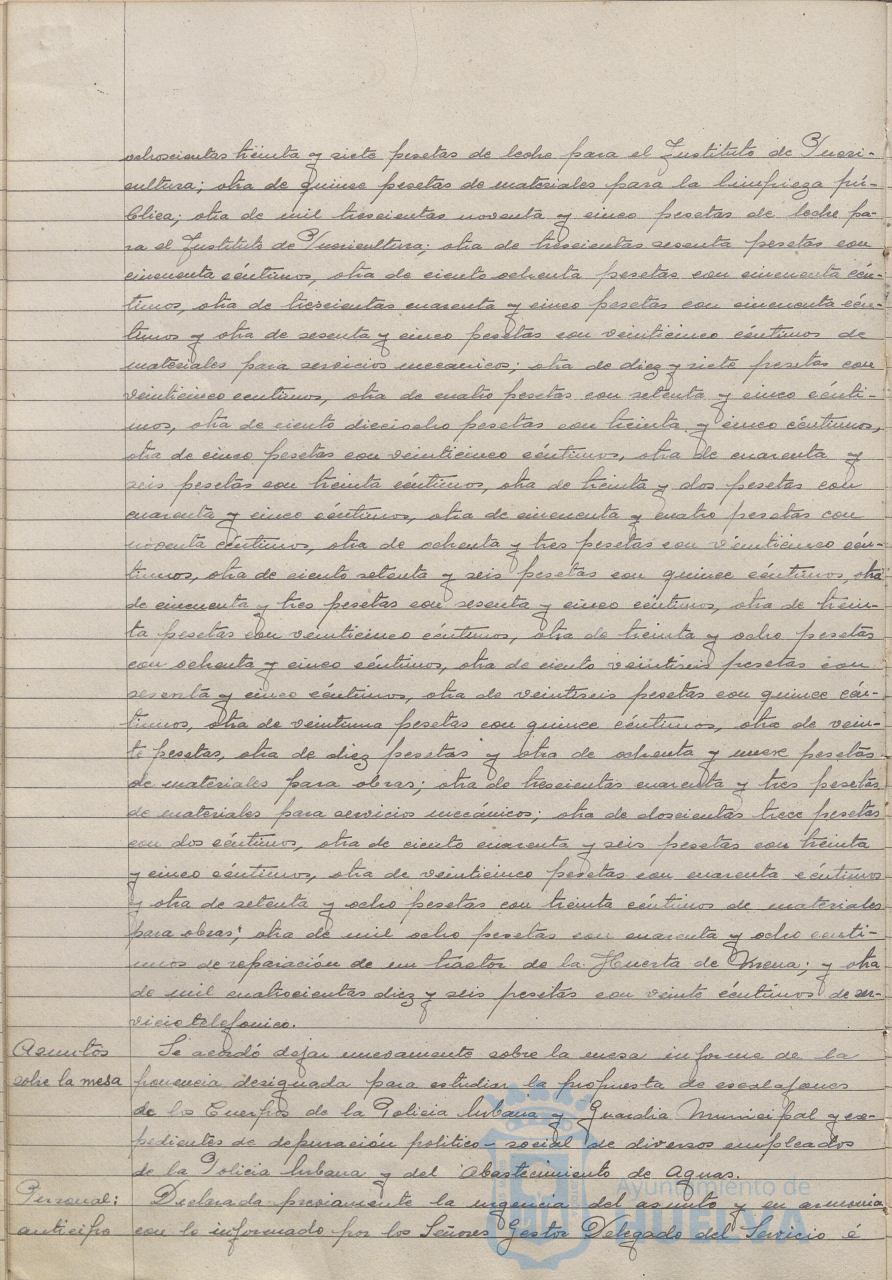 ochoscientas treinta y siete pesetas de leche para el Instituto de Pueri-
cultura; otra de quince pesetas de materiales para la limpieza pú-
blica; otra de mil trescientas noventa y cinco pesetas de leche pa-
ra el Instituto de Puericultura; otra de trescientas sesenta pesetas con
cincuenta céntimos, otra de ciento ochenta pesetas con cincuenta cén-
timos, otra de trescientas cuarenta y cinco pesetas con cincuenta cén-
timos y otra de sesenta y cinco pesetas con veinticinco céntimos de
materiales para servicios mecanicos; otra de diez y siete pesetas con
veinticinco centimos, otra de cuatro pesetas con setenta y cinco cénti-
mos, otra de ciento dieciocho pesetas con treinta y cinco céntimos,
otra de cinco pesetas con veinticinco céntimos, otra de cuarenta y
seis pesetas con treinta céntimos, otra de treinta y dos pesetas con
cuarenta y cinco céntimos, otra de cincuenta y cuatro pesetas con
noventa céntimos, otra de ochenta y tres pesetas con veinticinco cén-
timos, otra de ciento setenta y seis pesetas con quince céntimos, otra
de cincuenta y tres pesetas con sesenta y cinco céntimos, otra de trein-
ta pesetas con veinticinco céntimos, otra de treinta y ocho pesetas
con ochenta y cinco céntimos, otra de ciento veintiseis pesetas con
sesenta y cinco céntimos, otra de veintiseis pesetas con quince cén-
timos, otra de veintiuna pesetas con quince céntimos, otra de vein-
te pesetas, otra de diez pesetas y otra de ochenta y nueve pesetas
de materiales para obras; otra de trescientas cuarenta y tres pesetas
de materiales para servicios mecánicos; otra de doscientas trece pesetas
con dos céntimos, otra de ciento cuarenta y seis pesetas con treinta
y cinco céntimos, otra de veinticinco pesetas con cuarenta céntimos
y otra de setenta y ocho pesetas con treinta céntimos de materiales
para obras; otra de mil ocho pesetas con cuarenta y ocho centi-
mos de reparación de un tractor de la Huerta de Mena; y otra
de mil cuatrocientas diez y seis pesetas con veinte céntimos de ser-
vicio telefonico.
Asuntos Se acordó dejar nuevamente sobre la mesa informe de la
sobre la mesa ponencia designada para estudiar la propuesta de escalafones
de los Cuerpos de la Policia Urbana y Guardia Municipal y ex-
pedientes de depuración politico-social de diversos empleados
de la Policia Urbana y del Abastecimiento de Aguas.
Personal: Declarada previamente la urgencia del asunto y en armonia
anticipo con lo informado por los Señores Gestor Delegado del Servicio é
Ayuntamiento de
HUELVA